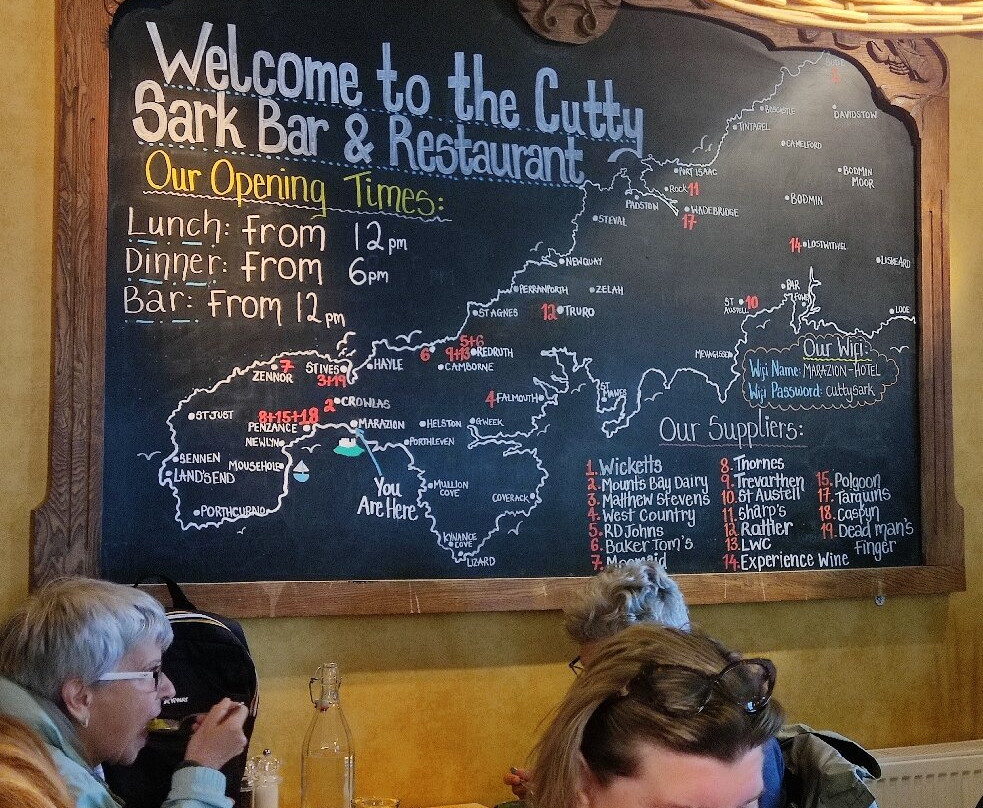 Welcome to the Cutty
Sark Bar & Restaurant
Our Opening Times:
Lunch: from 12pm
Dinner: from 6pm
Bar: From 12pm
BUDE
BOSCASTLE
DAVIDSTOW
TINTAGEL
CAMELFORD
PORT ISAAC
BODMIN
MOOR
ROCK 11
PADSTOW
WADEBRIDGE
17
BODMIN
STEVAL
14 LOSTWITHIEL
LISKEARD
NEWQUAY
PERRANPORTH
ZELAH
PAR
ST
AUSTELL
10
LOOE
ST AGNES
12 TRURO
5+6
6
9+13 REDRUTH
HAYLE
CAMBORNE
MEVAGISSEY
Our Wifi:
Wifi Name: MARAZION-HOTEL
Wifi Password: cuttysark
7
ZENNOR
ST IVES
3+19
ST
MAWES
4 FALMOUTH
2 CROWLAS
ST JUST
8+15+18
PENZANCE
MARAZION
HELSTON
GWEEK
NEWLYN
PORTHLEVEN
SENNEN
MOUSEHOLE
LAND'S END
You
Are Here
MULLION
COVE
COVERACK
PORTHCURNO
KYNANCE
COVE
LIZARD
Our Suppliers:
1. Wicketts
2. Mounts Bay Dairy
3. Matthew Stevens
4. West Country
5. RD Johns
6. Baker Tom's
7. Mermaid
8. Thornes
9. Trevarthen
10. St Austell
11. Sharp's
12. Rattler
13. LWC
14. Experience Wine
15. Polgoon
17. Tarquins
18. Caspyn
19. Dead man's
Finger